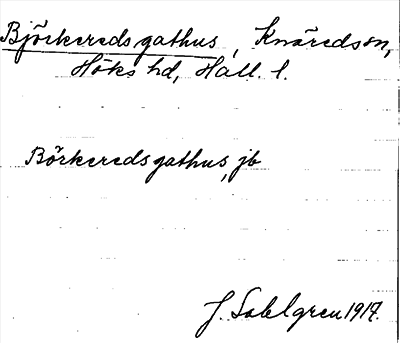 Björkeredsgathus, Knäredsn,
Höks hd, Hall. l.
Börkeredsgathus, jb
J. Sahlgren 1917.